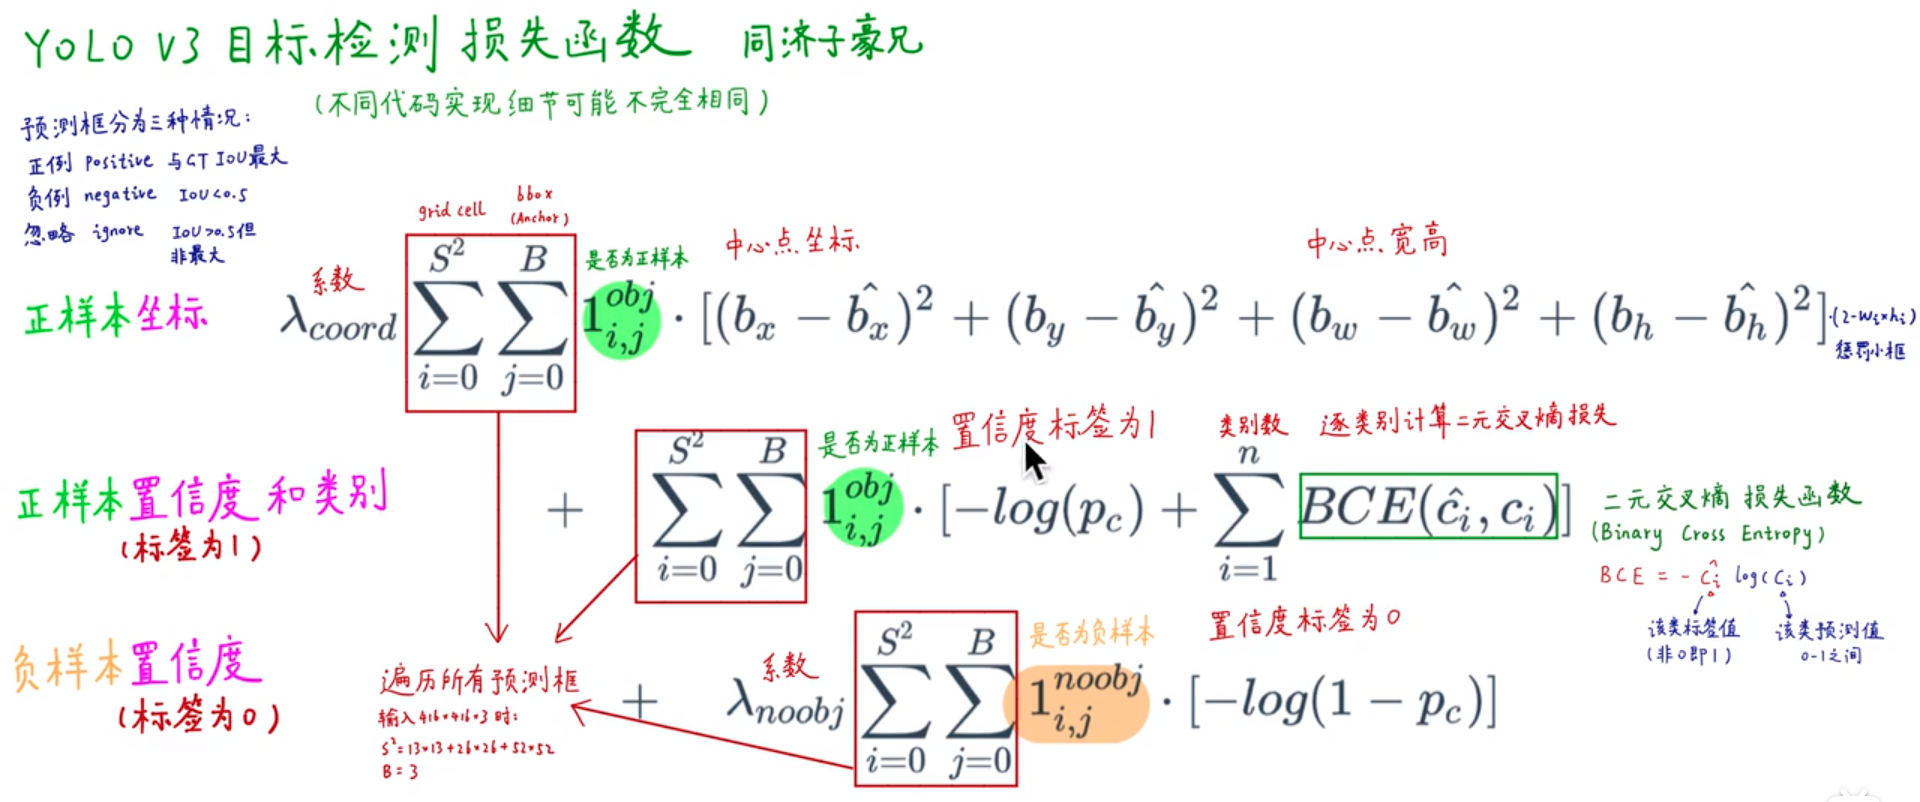 YOLO V3 目标检测 损失函数 同济子豪兄
(不同代码实现细节可能不完全相同)
预测框分为三种情况:
正例 positive 与GT IOU最大
负例 negative IOU<0.5
忽略 ignore IOU>0.5但
非最大
grid cell
bbox
(Anchor)
正样本坐标
系数
是否为正样本
中心点坐标
中心点宽高
λ_{coord} \sum_{i=0}^{S^2} \sum_{j=0}^{B} 1_{i,j}^{obj} · [(b_x − \hat{b_x})^2 + (b_y − \hat{b_y})^2 + (b_w − \hat{b_w})^2 + (b_h − \hat{b_h})^2] ·(2-w_i×h_i)
惩罚小框
正样本置信度和类别
(标签为1)
是否为正样本
置信度标签为1
类别数
逐类别计算二元交叉熵损失
+ \sum_{i=0}^{S^2} \sum_{j=0}^{B} 1_{i,j}^{obj} · [−log(p_c) + \sum_{i=1}^{n} BCE(\hat{c}_i, c_i)]
二元交叉熵 损失函数
(Binary Cross Entropy)
BCE = - \hat{c}_i log(c_i)
该类标签值
(非0即1)
该类预测值
0-1之间
负样本置信度
(标签为0)
遍历所有预测框
输入416×416×3时:
S²=13×13+26×26+52×52
B=3
系数
是否为负样本
置信度标签为0
+ λ_{noobj} \sum_{i=0}^{S^2} \sum_{j=0}^{B} 1_{i,j}^{noobj} · [−log(1 − p_c)]